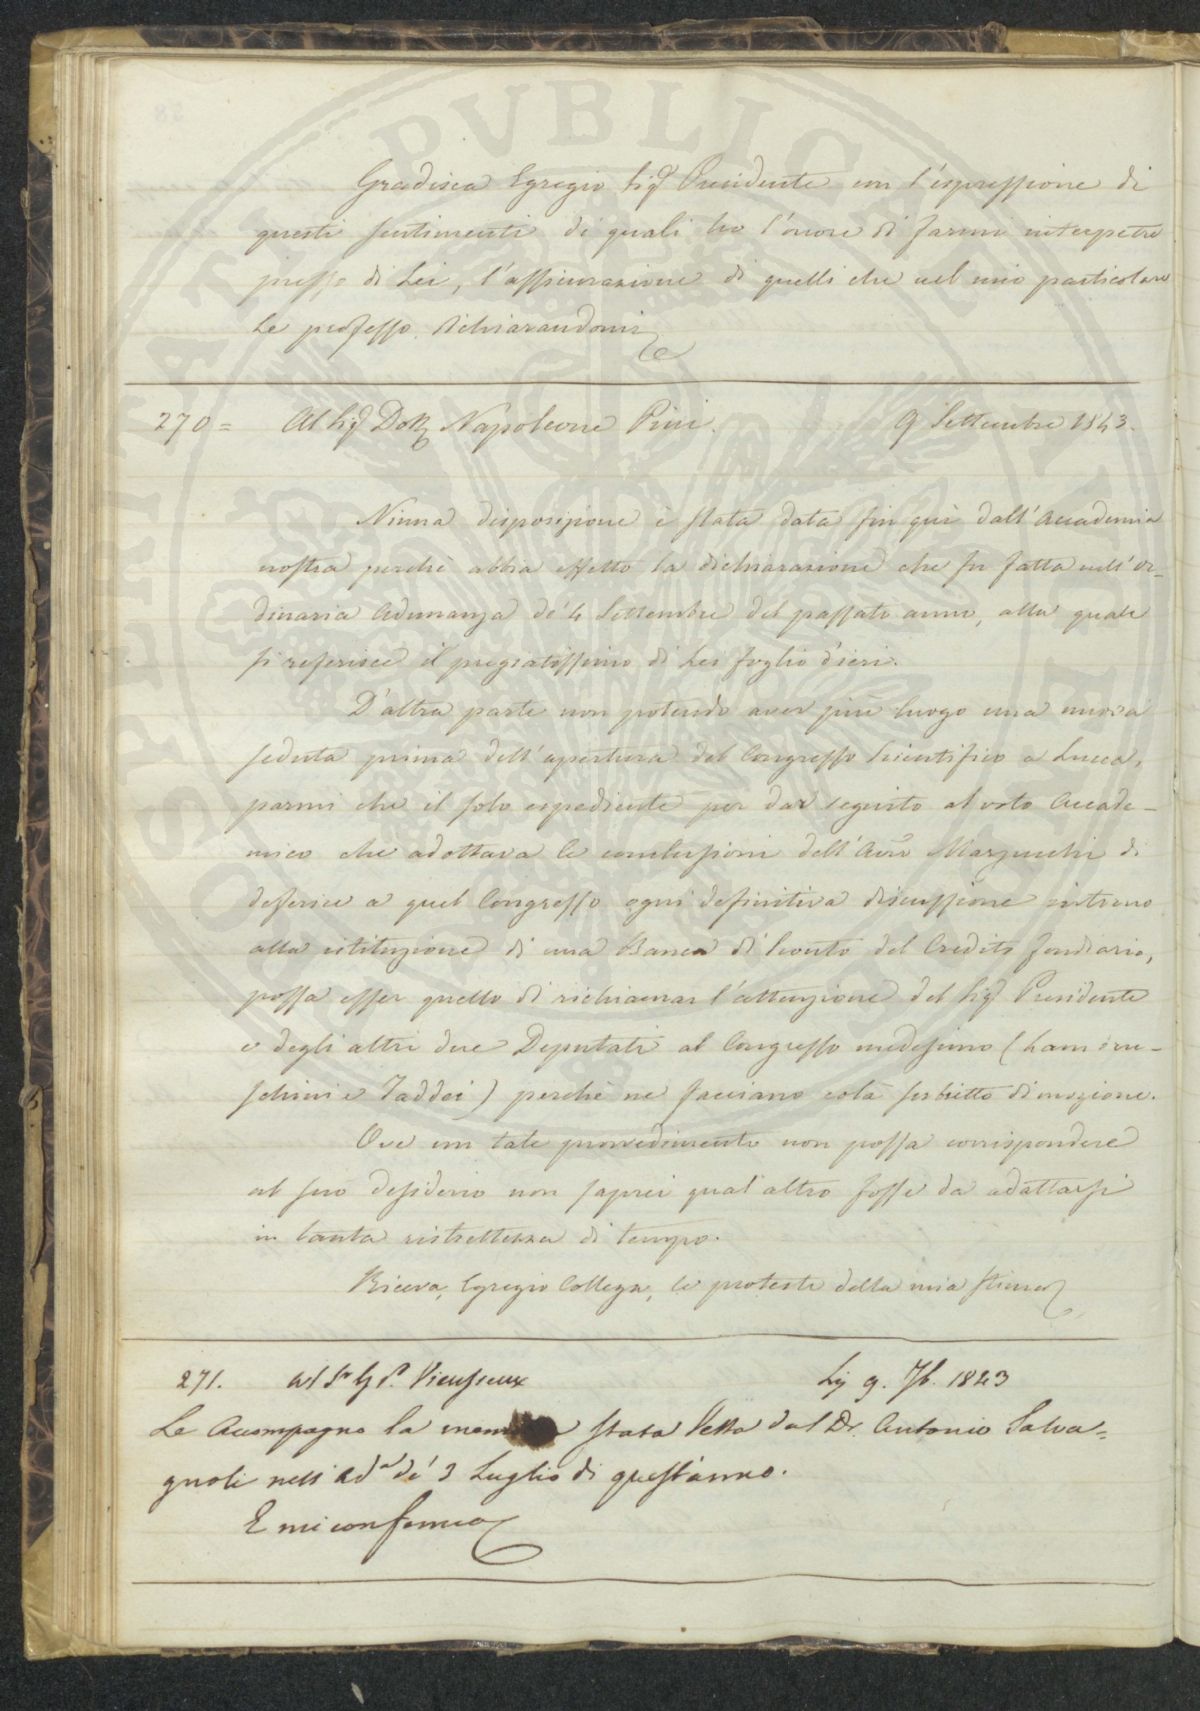 Gradisca Egregio Sig.r Presidente con l'espressione di
questi sentimenti di quali ho l'onore di farmi interpetre
presso di Lei, l'assicurazione di quelli che nel mio particolare
Le professo dichiarandomi
270 = Al Sig.r Dott. Napoleone Pini. 9 Settembre 1843.
Niuna disposizione è stata data fin quì dall'Accademia
nostra perchè abbia effetto la dichiarazione che fu fatta nell'or-
dinaria Adunanza de' 4 Settembre del passato anno, alla quale
si referisce il pregiatissimo di Lei foglio d'ieri.
D'altra parte non potendo aver più luogo una nuova
seduta prima dell'apertura del Congresso Scientifico a Lucca,
parmi che il solo espediente per dar seguito al voto Accade-
mico che adottava le conclusioni dell'Avv. Marzucchi di
deferire a quel Congresso ogni definitiva discussione intorno
alla istituzione di una Banca di Sconto del Credito fondiario,
possa esser quello di richiamar l'attenzione del Sig.r Presidente
e degli altri due Deputati al Congresso medesimo (Lambru-
schini e Taddei) perchè ne facciano colà subietto di mozione.
Ove un tale provvedimento non possa corrispondere
al suo desiderio non saprei qual'altro fosse da adattarsi
in tanta ristrettezza di tempo.
Riceva, Egregio Collega, le proteste della mia stima
271. Al S.r G. P. Vieusseux Li 9. 7b. 1843
Le Accompagno la stata letta dal Dr. Antonio Salva=
gnoli nell'Ad.a de' 3 Luglio di quest'anno.
E mi confermo
PUBLICAE